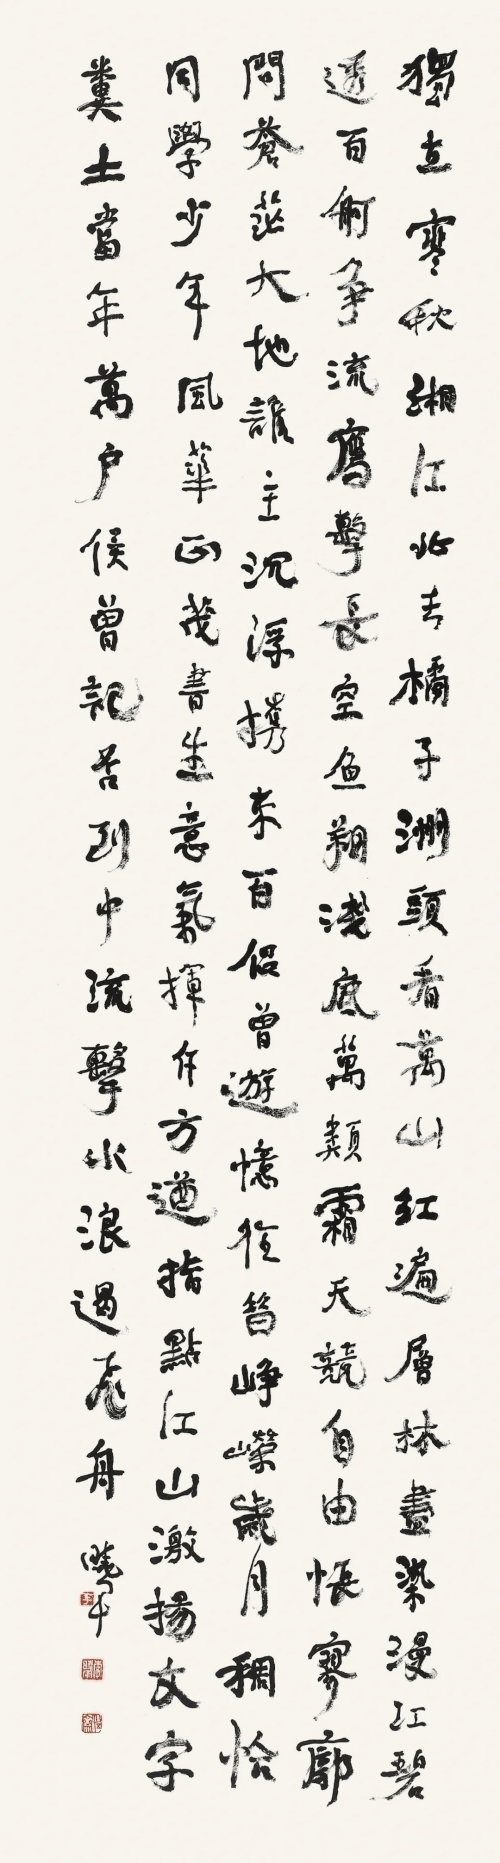 獨立寒秋湘江北去橘子洲頭看萬山紅遍層林盡染漫江碧
透百舸爭流鷹擊長空魚翔淺底萬類霜天競自由悵寥廓
問蒼茫大地誰主沉浮攜來百侶曾遊憶往昔崢嶸歲月稠恰
同學少年風華正茂書生意氣揮斥方遒指點江山激揚文字
糞土當年萬户侯曾記否到中流擊水浪遏飛舟